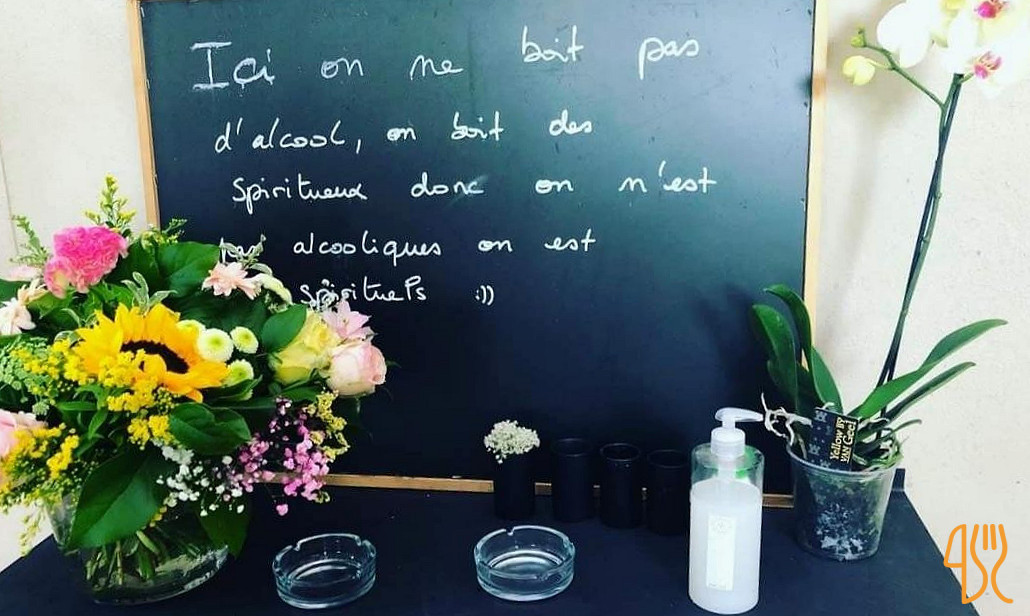 Ici on ne boit pas
d'alcool, on boit des
spiritueux donc on n'est
pas alcooliques on est
spirituels :))
Yellow BY
VAN Geel